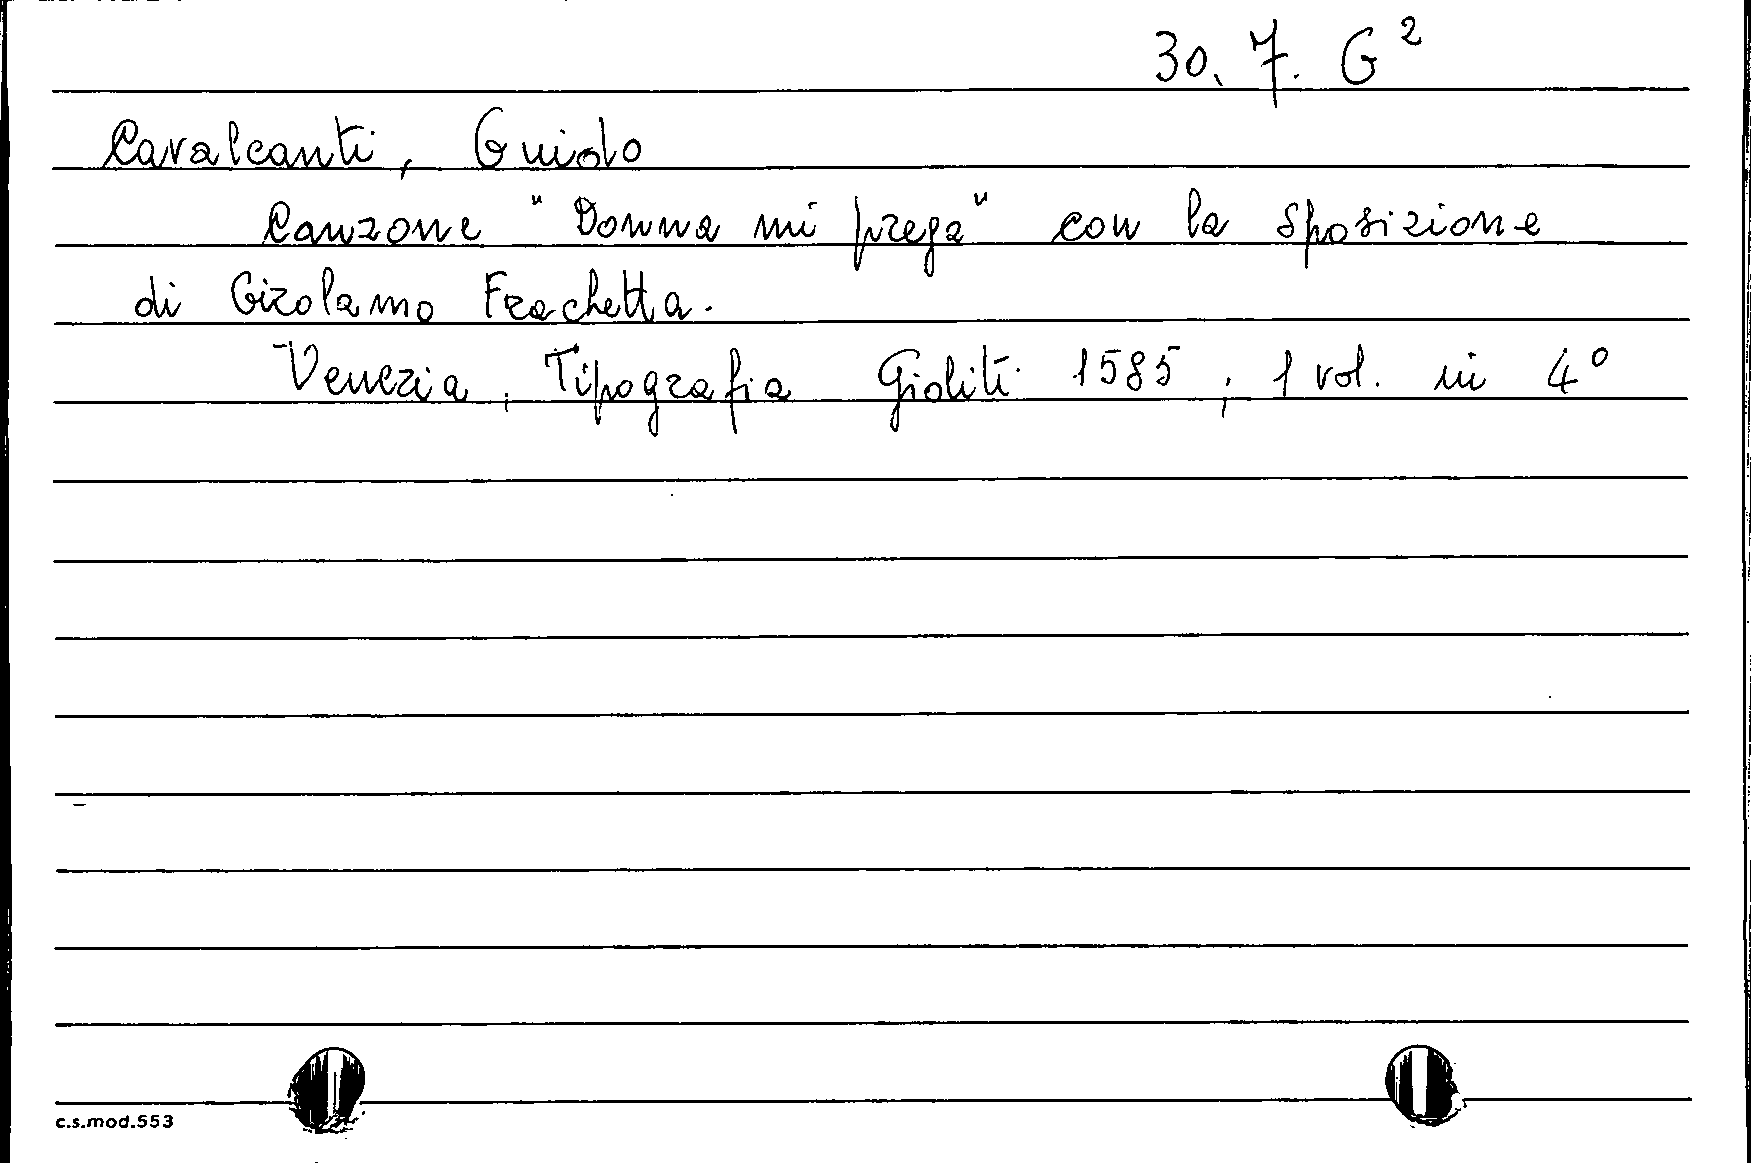 30. 7. G²
Cavalcanti, Guido
Canzone "Donna mi prega" con la sposizione
di Girolamo Frachetta.
Venezia, Tipografia Gioliti 1585, 1 vol. in 4°
c.s.mod.553